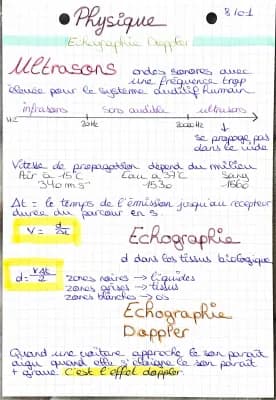 Physique
8/01
Echographie Doppler
Ultrasons ondes sonores avec
une fréquence trop
élevée pour le système auditif humain
infrasons sons audible ultrasons
Hz 20Hz 20000Hz
se propage pas
dans le vide
Vitesse de propagation dépend du milieu
Air à 15°C Eau à 37°C Sang
340 m.s⁻¹ ~1530 ~1560
Δt = le temps de l'émission jusqu'au recepteur
durée du parcour en s.
V = d/Δt
Echographie
d dans les tissus biologique
d = VΔt/2
zones noires → liquides
zones grises → tissus
zones blanches → os
Echographie
Doppler
Quand une voiture approche le son parait
aigu quand elle s'éloigne le son parait
+ grave c'est l'effet doppler.